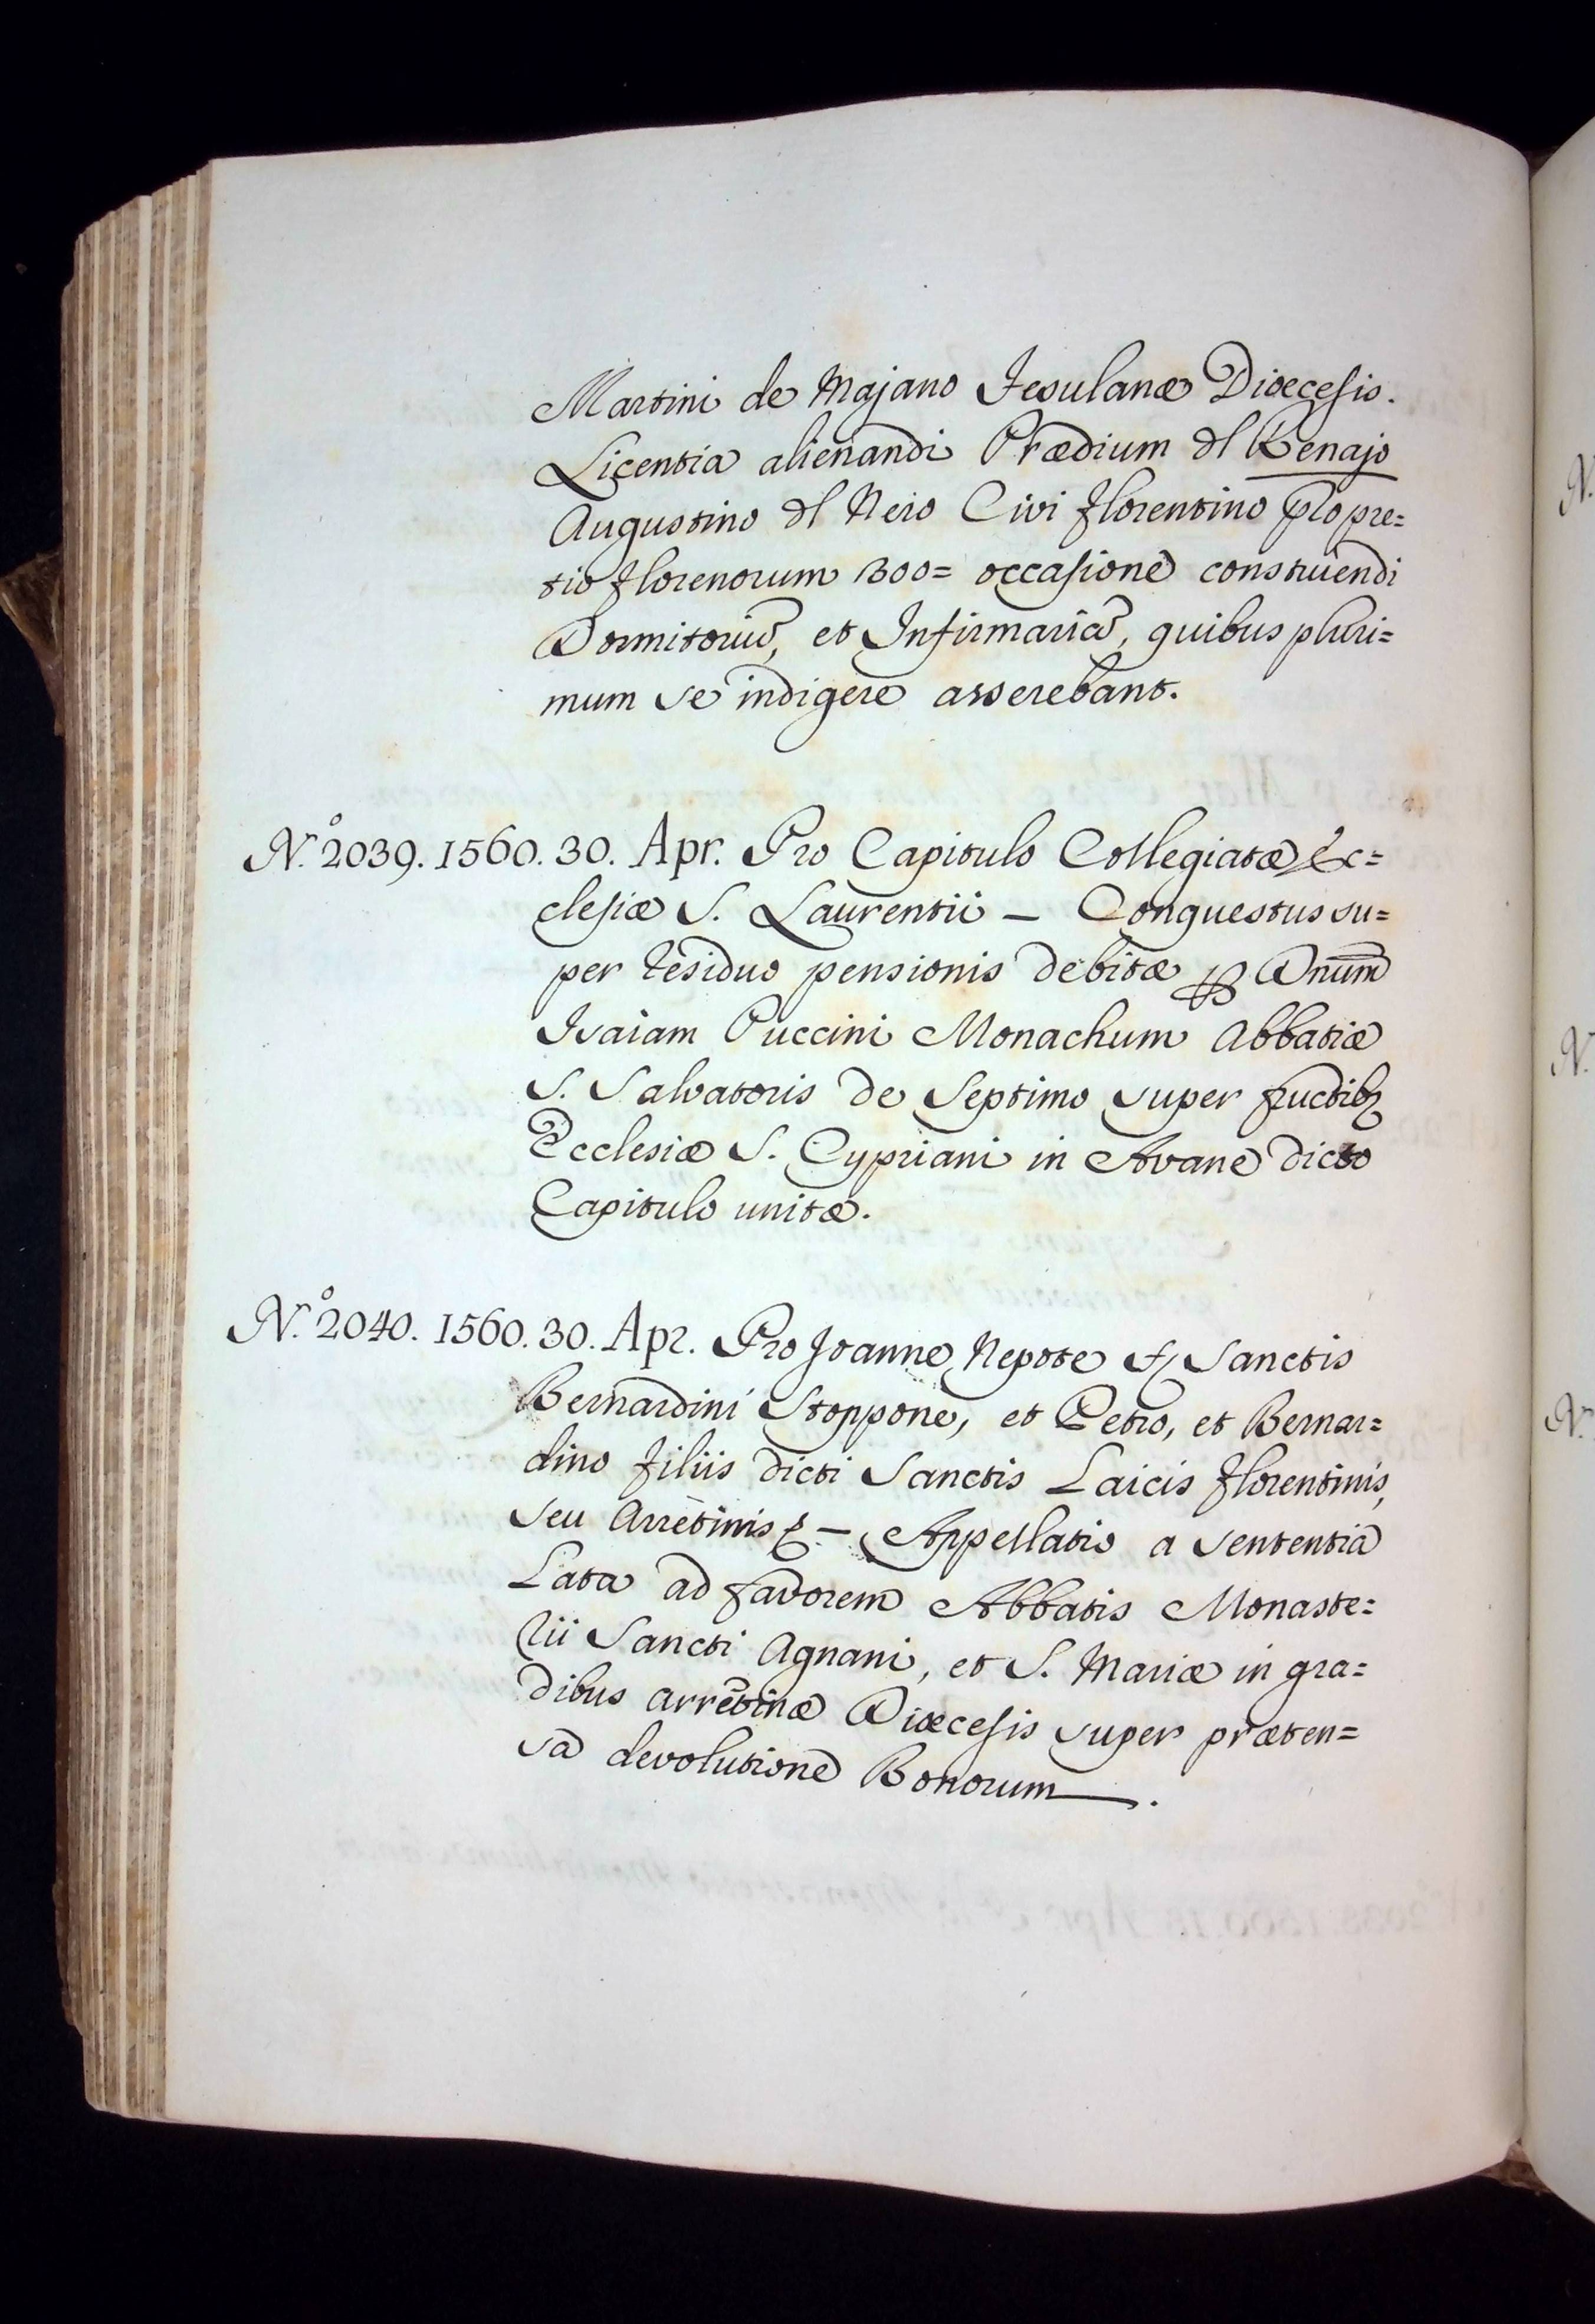 Martini de Majano Fesulanæ Diœcesis.
Licentia alienandi Prædium dl Renajo
Augustino dl Nero Civi florentino pro pre=
tio florenorum 300= occasione construendi
Dormitoriū, et Infirmariā, quibus pluri=
mum se indigere asserebant.
N.º 2039. 1560. 30. Apr. Pro Capitulo Collegiatæ Ec=
clesiæ S. Laurentii — Conquestus su=
per residuo pensionis debitæ ꝑ Dnum̄
Isaiam Puccini Monachum Abbatiæ
S. Salvatoris de Septimo super fructibꝫ
Ecclesiæ S. Cypriani in Avane dicto
Capitulo unitæ.
N.º 2040. 1560. 30. Apr. Pro Joanne Nepote Sanctis
Bernardini Stoppone, et Petro, et Bernar=
dino filiis dicti Sanctis Laicis florentinis,
seu Arretinis — Appellatio a sententia
Lata ad favorem Abbatis Monaste=
rii Sancti Agnani, et S. Mariæ in gra=
dibus arretinæ Diœcesis super præten=
sa devolutione Bonorum.
N.
N.
N.